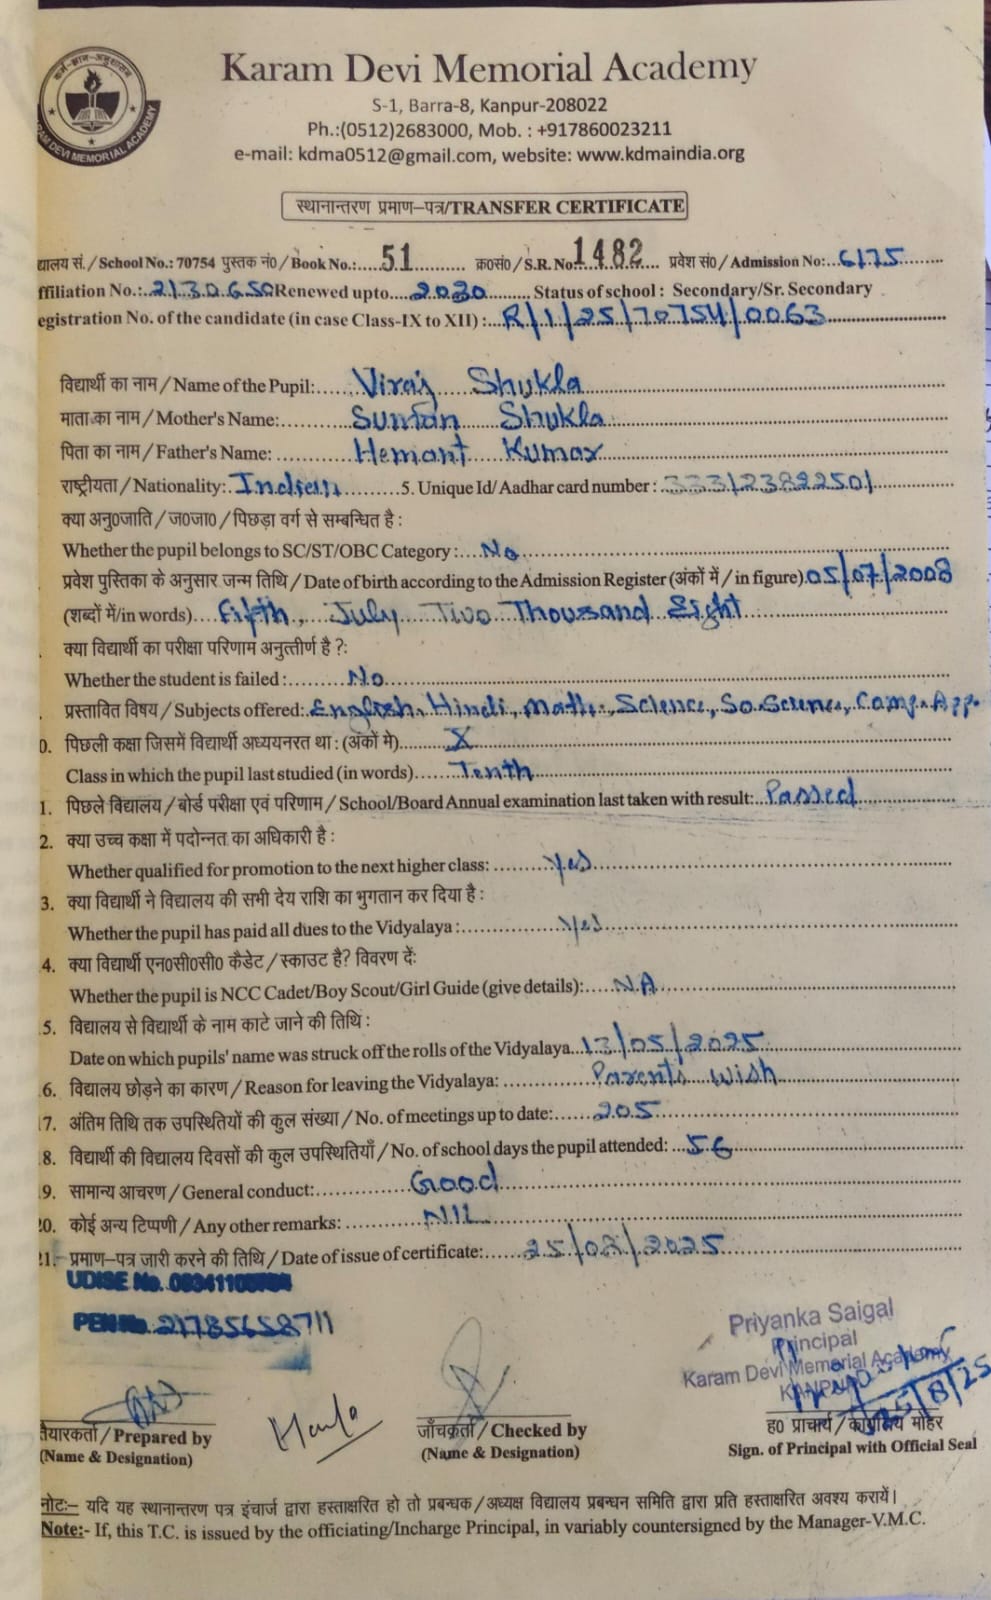 कर्म-ज्ञान-अनुशासन
KARAM DEVI MEMORIAL ACADEMY
Karam Devi Memorial Academy
S-1, Barra-8, Kanpur-208022
Ph.:(0512)2683000, Mob. : +917860023211
e-mail: kdma0512@gmail.com, website: www.kdmaindia.org
स्थानान्तरण प्रमाण-पत्र/TRANSFER CERTIFICATE
द्यालय सं./School No.: 70754 पुस्तक नं०/Book No.:....51.......... क्र०सं०/S.R. No.1482.... प्रवेश सं०/Admission No:..6175........
ffiliation No.:.2130650Renewed upto....2030.......... Status of school : Secondary/Sr. Secondary
egistration No. of the candidate (in case Class-IX to XII) :...R/1/25/70754/0063....................
विद्यार्थी का नाम/Name of the Pupil:......Viraj Shukla....................
माता का नाम/Mother's Name:............Suman Shukla....................
पिता का नाम/Father's Name: ............Hemant Kumar....................
राष्ट्रीयता/Nationality:.Indian..........5. Unique Id/Aadhar card number :.333123822501...............
क्या अनु०जाति/ज०जा०/पिछड़ा वर्ग से सम्बन्धित है :
Whether the pupil belongs to SC/ST/OBC Category :....No....................
प्रवेश पुस्तिका के अनुसार जन्म तिथि/Date of birth according to the Admission Register (अंकों में/in figure).05/07/2008
(शब्दों में/in words)....Fifth, July Two Thousand Eight....................
क्या विद्यार्थी का परीक्षा परिणाम अनुत्तीर्ण है ?:
Whether the student is failed :..........No....................
प्रस्तावित विषय/Subjects offered:.English, Hindi, Math., Science, So.Science, Comp. App.
0. पिछली कक्षा जिसमें विद्यार्थी अध्ययनरत था : (अंकों मे)........X....................
Class in which the pupil last studied (in words)......Tenth....................
1. पिछले विद्यालय/बोर्ड परीक्षा एवं परिणाम/School/Board Annual examination last taken with result:..Passed...............
2. क्या उच्च कक्षा में पदोन्नत का अधिकारी है :
Whether qualified for promotion to the next higher class: .........Yes....................
3. क्या विद्यार्थी ने विद्यालय की सभी देय राशि का भुगतान कर दिया है :
Whether the pupil has paid all dues to the Vidyalaya :..................Yes....................
4. क्या विद्यार्थी एन०सी०सी० कैडेट/स्काउट है? विवरण दें:
Whether the pupil is NCC Cadet/Boy Scout/Girl Guide (give details):.....N.A....................
5. विद्यालय से विद्यार्थी के नाम काटे जाने की तिथि :
Date on which pupils' name was struck off the rolls of the Vidyalaya..13/05/2025....................
6. विद्यालय छोड़ने का कारण/Reason for leaving the Vidyalaya: ..............Parents wish....................
17. अंतिम तिथि तक उपस्थितियों की कुल संख्या/No. of meetings up to date:.......205....................
8. विद्यार्थी की विद्यालय दिवसों की कुल उपस्थितियाँ/No. of school days the pupil attended: ...56....................
9. सामान्य आचरण/General conduct:................Good....................
20. कोई अन्य टिप्पणी/Any other remarks: ..............NIL....................
21. प्रमाण-पत्र जारी करने की तिथि/Date of issue of certificate:......25/08/2025....................
UDISE No.
PEN No. 21785658711
Priyanka Saigal
Principal
Karam Devi Memorial Academy
KANPUR
25/8/25
तैयारकर्ता/Prepared by
(Name & Designation)
जाँचकर्ता/Checked by
(Name & Designation)
ह० प्राचार्य/कार्यालय मोहर
Sign. of Principal with Official Seal
नोटः- यदि यह स्थानान्तरण पत्र इंचार्ज द्वारा हस्ताक्षरित हो तो प्रबन्धक/अध्यक्ष विद्यालय प्रबन्धन समिति द्वारा प्रति हस्ताक्षरित अवश्य करायें।
Note:- If, this T.C. is issued by the officiating/Incharge Principal, in variably countersigned by the Manager-V.M.C.